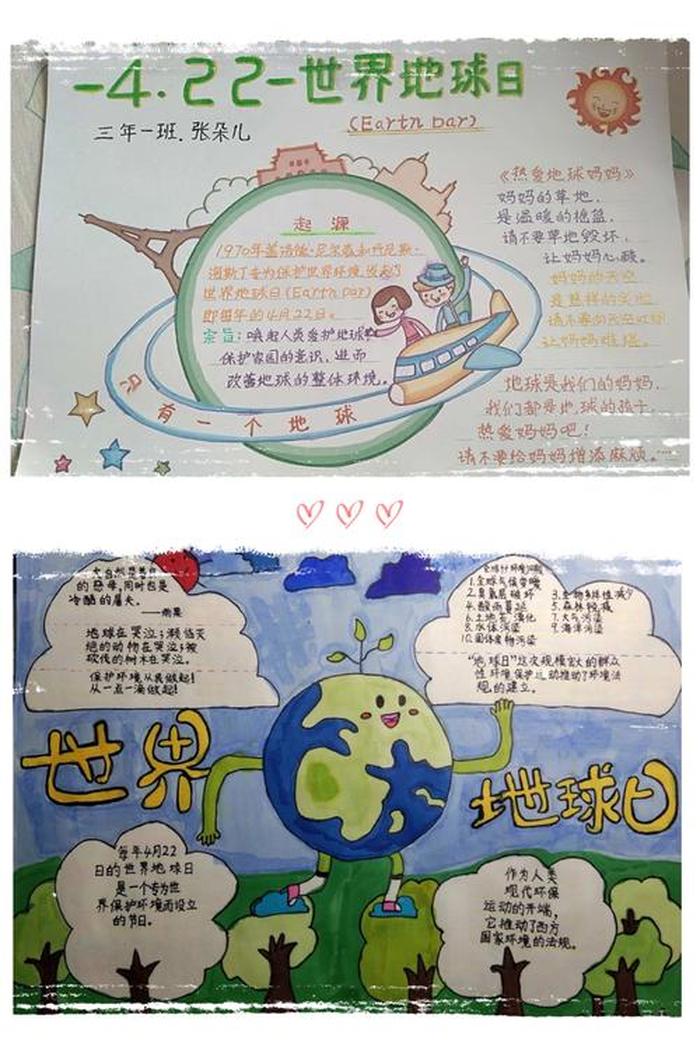 -4.22-世界地球日
(Eartn Dar)
三年一班.张朵儿
起源
1970年盖洛德·尼尔森和丹尼斯·
海斯丁安为保护世界环境,发起了
世界地球日(Eartn Dar)
即每年的4月22日。
宗旨:唤起人类爱护地球,
保护家园的意识,进而
改善地球的整体环境。
只有一个地球
《热爱地球妈妈》
妈妈的草地,
是温暖的摇篮,
请不要草地毁坏,
让妈妈心酸。
妈妈的天空
是慈祥的笑脸
请不要向天空
让妈妈难堪。
地球是我们的妈妈,
我们都是地球的孩子,
热爱妈妈吧!
请不要给妈妈增添麻烦。
大自然是善良
的慈母,同时也是
冷酷的屠夫。
——雨果
地球在哭泣;濒临灭
绝的动物在哭泣;被
砍伐的树木在哭泣。
保护环境从我做起!
从一点一滴做起!
1.全球气候变暖
2.臭氧层破坏 3.生物多样性减少
4.酸雨蔓延 5.森林锐减
6.土地荒漠化 7.大气污染
8.水体污染 9.海洋污染
10.固体废物污染
"地球日"这次规模宏大的群众
性环境保护运动推动了环境法
规的建立。
世界
地球日
每年4月22
日的世界地球日
是一个专为世
界保护环境而设立
的节日。
作为人类
现代环保
运动的开端,
它推动了西方
国家环境的法规。